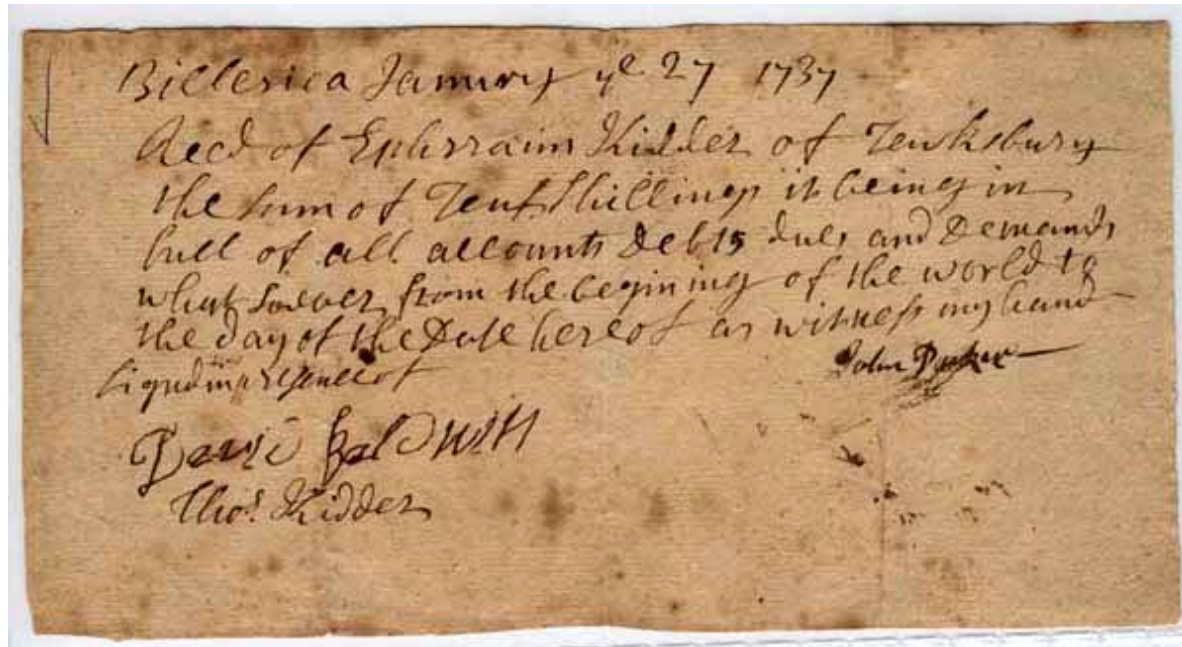 Billerica January ye 27 1737
Recd of Ephraim Kidder of Tewksbury
the sum of Ten Shillings it being in
full of all accounts Debts dues and Demands
whatsoever from the begining of the world to
the day of the Date hereof as witness my hand
Signed in presence of
John Parker
David Baldwin
Thos Kidder